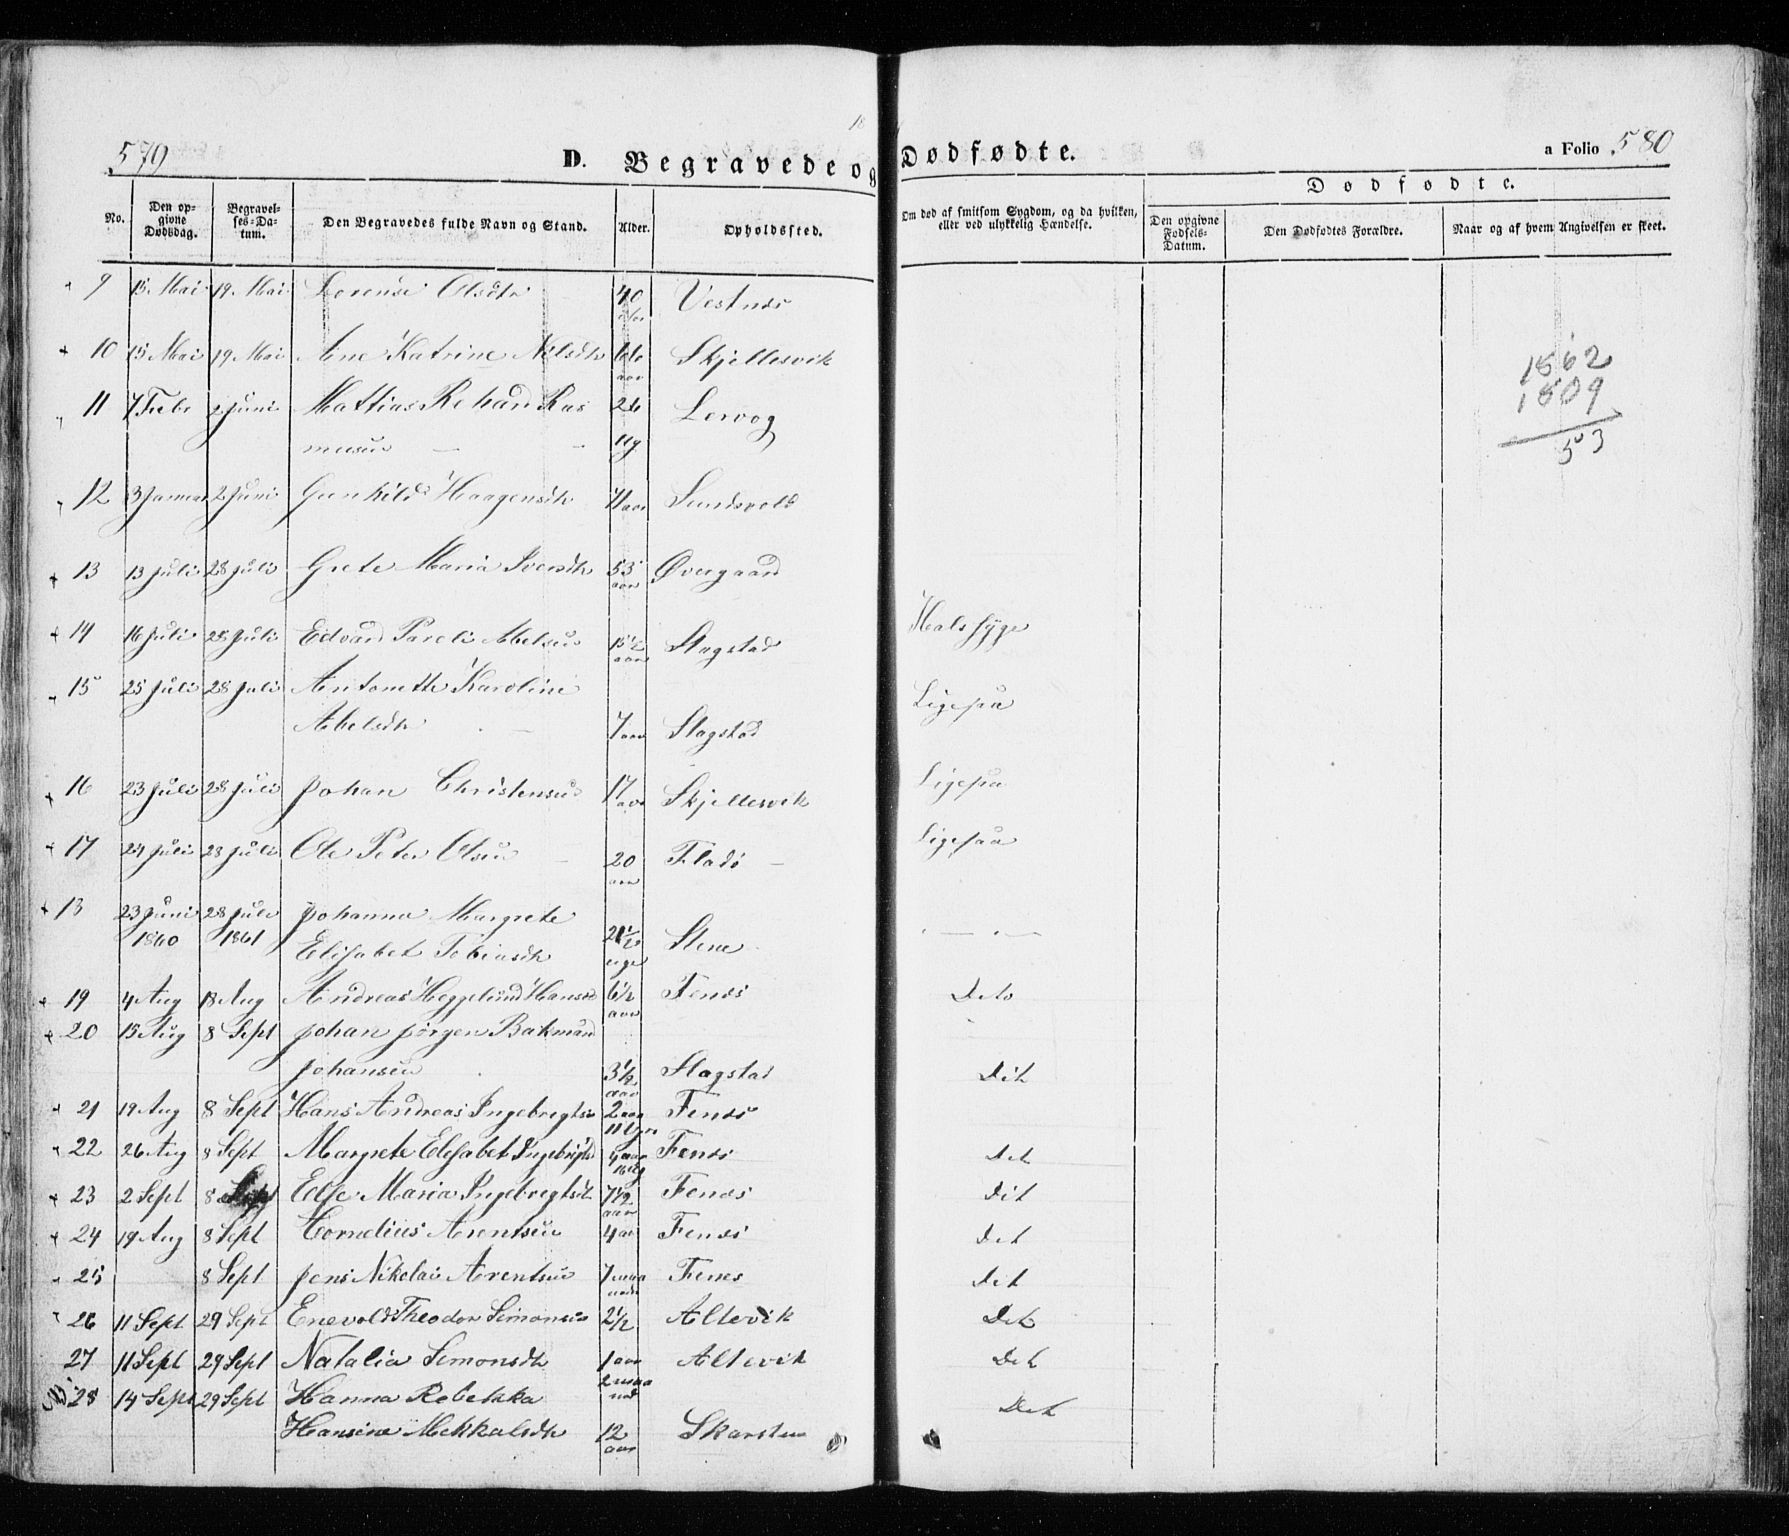 579
D. Begravede og Dødfødte.
a Folio 580
Dødfødte.
No.
Den op-
givne
Dødsdag.
Begravel-
ses-Da-
tum.
Den Begravedes fulde Navn og Stand.
Alder.
Opholdssted.
Om død af smitsom Sygdom, og da hvilken,
eller ved ulykkelig Hændelse.
Den opgivne
Fødsels-
Datum.
Den Dødfødtes Forældre.
Naar og af hvem Angivelsen er skeet.
9 15 Mai 19 Mai Lorense Olsdtr 40 aar Vestnes
10 15 Mai 19 Mai Ane Katrine Nilsdtr 66 aar Skjellesvik
1862
1809
53
11 7 Febr 2 Juni Mattias Rikard Ras 26 Lervog
musen ug
12 3 Januar 2 Juni Gunhild Haagensdtr 71 aar Sundsvold
13 13 Juli 28 Juli Grete Maria Iversdtr 53 aar Øvergaard
14 16 Juli 28 Juli Edvard Pareli Abelsen 15½ aar Slagstad Halssyge
15 25 Juli 28 Juli Antonette Karoline
Abelsdtr 7 aar Slagstad Ligesaa
16 23 Juli 28 Juli Johan Christensen 17 aar Skjellesvik Ligesaa
17 24 Juli 28 Juli Ole Peter Olsen 20 aar Fladø Ligesaa
18 23 Juni 28 Juli Johanna Margrete
1860 1861 Elisabet Tobiasdtr 21½ uger Stene
19 4 Aug 18 Aug Andreas Heggelund Hansen 6½ aar Fenes Deto
20 15 Aug 8 Sept Johan Jørgen Bakmand
Johansen 3½ aar Slagstad Dit
21 19 Aug 8 Sept Hans Andreas Ingebregtsen 2 aar 11 Ugr Fenes
22 26 Aug 8 Sept Margrete Elisabet Ingebrigtsd Fenes Det
23 2 Sept 8 Sept Else Maria Ingebregtsdt 7½ aar Fenes Dit
24 19 Aug 8 Sept Cornelius Arentsen 4 aar Fenes Det
25 8 Sept Jens Nikolai Arentsen 7 maaneder Fenes Det
26 11 Sept 29 Sept Enevold Theodor Simonsen 2½ Altevik Det
27 11 Sept 29 Sept Natalia Simonsdtr 1 aar 2 maaned Altevik Det
28 14 Sept 29 Sept Hanna Rebekka Det
Hansine Mekkalsdtr 12 aar Skarsten